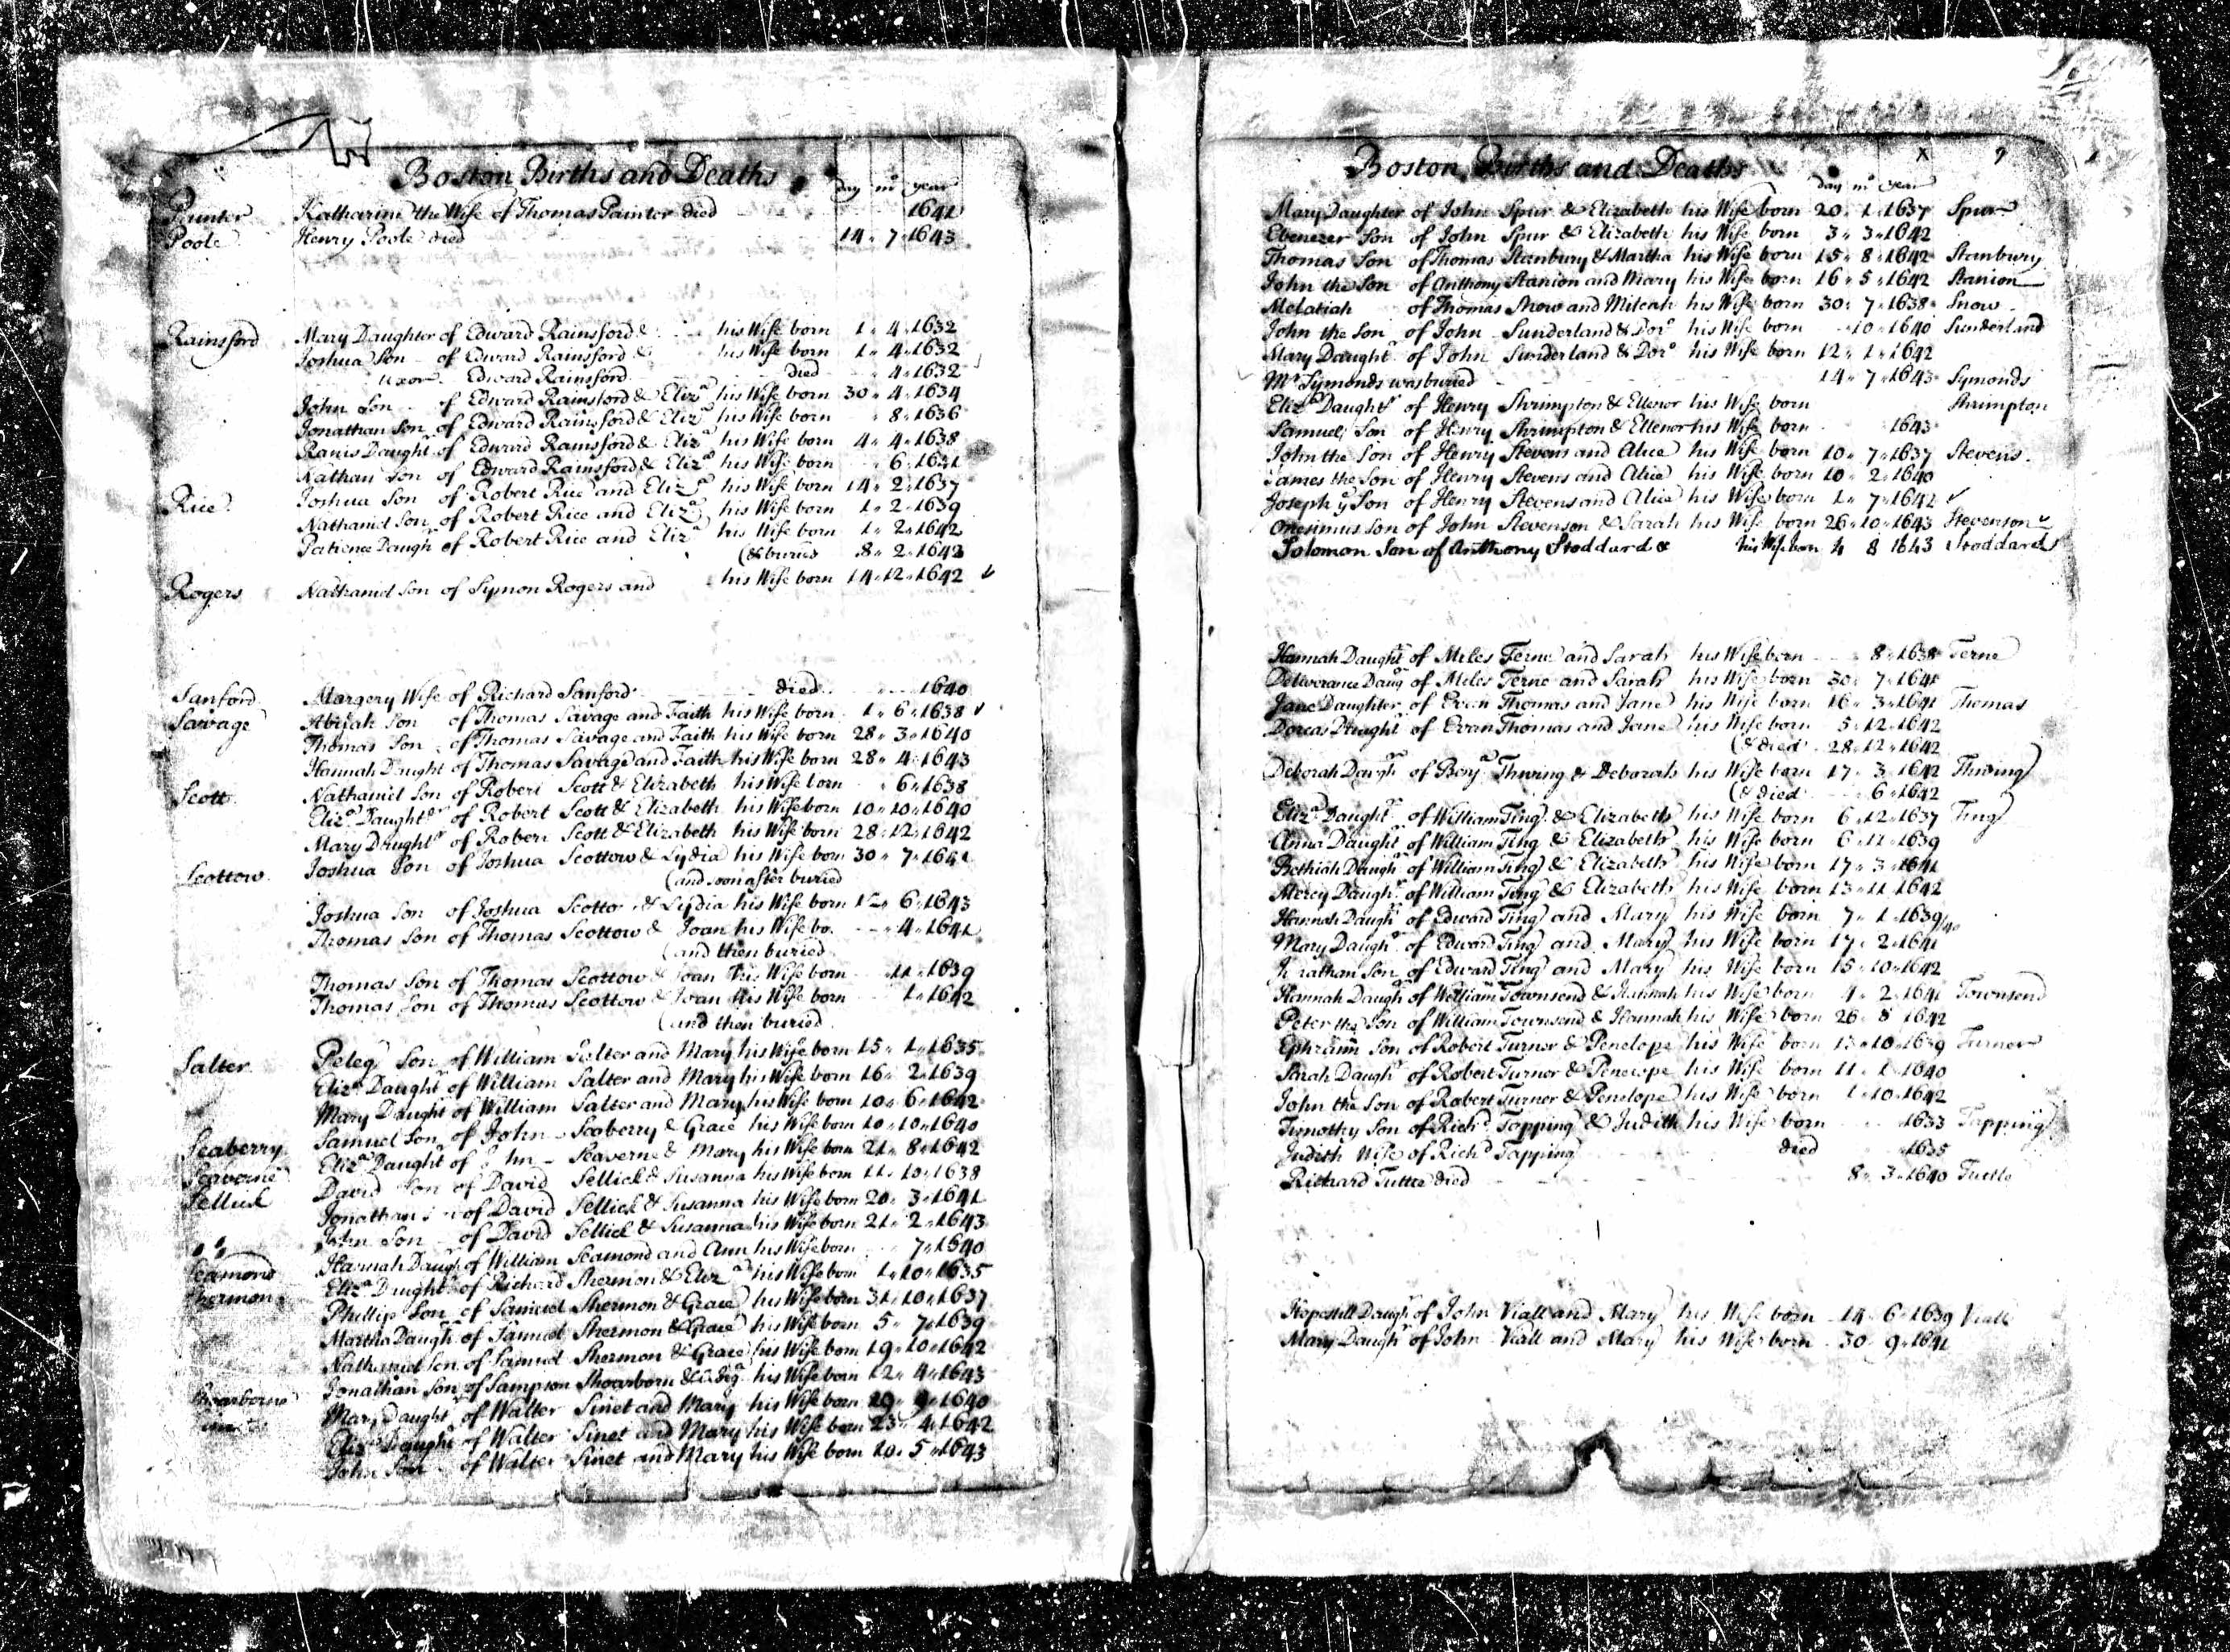 Boston Births and Deaths
day mo year
Painter Katharine the Wife of Thomas Painter died 1641
Poole Henry Poole died 14 7 1643
Rainsford Mary Daughter of Edward Rainsford & his Wife born 1 4 1632
Joshua Son of Edward Rainsford & his Wife born 1 4 1632
Uxor Edward Rainsford died 4 1632
John Son of Edward Rainsford & Eliza his Wife born 30 4 1634
Jonathan Son of Edward Rainsford & Eliza his Wife born 8 1636
Ranis Daught of Edward Rainsford & Eliza his Wife born 4 4 1638
Nathan Son of Edward Rainsford & Eliza his Wife born 6 1641
Rice Joshua Son of Robert Rice and Eliza his Wife born 14 2 1637
Nathaniel Son of Robert Rice and Eliza his Wife born 1 2 1639
Patience Daughr of Robert Rice and Eliza his Wife born 1 2 1642
(& buried 8 2 1642
Rogers Nathaniel Son of Symon Rogers and his Wife born 14 12 1642
Sanford Margery Wife of Richard Sanford died 1640
Savage Abijah Son of Thomas Savage and Faith his Wife born 1 6 1638
Thomas Son of Thomas Savage and Faith his Wife born 28 3 1640
Hannah Daught of Thomas Savage and Faith his Wife born 28 4 1643
Scott Nathaniel Son of Robert Scott & Elizabeth his Wife born 6 1638
Eliza Daughtr of Robert Scott & Elizabeth his Wife born 10 10 1640
Mary Daughtr of Robert Scott & Elizabeth his Wife born 28 12 1642
Scottow Joshua Son of Joshua Scottow & Lydia his Wife born 30 7 1641
(and soon after buried
Joshua Son of Joshua Scotto & Lydia his Wife born 12 6 1643
Thomas Son of Thomas Scottow & Joan his Wife bo. 4 1641
(and then buried
Thomas Son of Thomas Scottow & Joan his Wife born 11 1639
Thomas Son of Thomas Scottow & Joan his Wife born 1 1642
(and then buried
Salter Peleg Son of William Salter and Mary his Wife born 15 1 1635
Eliza Daught of William Salter and Mary his Wife born 16 2 1639
Mary Daught of William Salter and Mary his Wife born 10 6 1642
Seaberry Samuel Son of John Seaberry & Grace his Wife born 10 10 1640
Seaverne Eliza Daught of Seaverne & Mary his Wife born 21 8 1642
Sellick David Son of David Sellick & Susanna his Wife born 11 10 1638
Jonathan of David Sellick & Susanna his Wife born 20 3 1641
John Son of David Sellick & Susanna his Wife born 21 2 1643
Seamond Hannah Daugh of William Seamond and Ann his Wife born 7 1640
Shermon Eliza Daught of Richard Shermon & Eliza his Wife born 1 10 1635
Phillip Son of Samuel Shermon & Grace his Wife born 31 10 1637
Martha Daugh of Samuel Shermon & Grace his Wife born 5 7 1639
Nathaniel Son of Samuel Shermon & Grace his Wife born 19 10 1642
Shoarborne Jonathan Son of Sampson Shoarborn & his Wife born 12 4 1643
Mary Daught of Walter Sinet and Mary his Wife born 29 9 1640
Eliza Daught of Walter Sinet and Mary his Wife born 23 4 1642
John Son of Walter Sinet and Mary his Wife born 10 5 1643
Boston Births and Deaths 9
day mo year
Mary Daughter of John Spur & Elizabeth his Wife born 20 1 1637 Spur
Ebenezer Son of John Spur & Elizabeth his Wife born 3 3 1642
Thomas Son of Thomas Stanbury & Martha his Wife born 15 8 1642 Stanbury
John the Son of Anthony Stanion and Mary his Wife born 16 5 1642 Stanion
Melatiah of Thomas Snow and Milcah his Wife born 30 7 1638 Snow
John the Son of John Sunderland & Doro his Wife born 10 1640 Sunderland
Mary Daught of John Sunderland & Doro his Wife born 12 1 1642
Mr Symonds was buried 14 7 1643 Symonds
Eliza Daughtr of Henry Shrimpton & Ellenor his Wife born Shrimpton
Samuel Son of Henry Shrimpton & Ellenor his Wife born 1643
John the Son of Henry Stevens and Alice his Wife born 10 7 1637 Stevens
James the Son of Henry Stevens and Alice his Wife born 10 2 1640
Joseph ye Son of Henry Stevens and Alice his Wife born 1 7 1642
Onesimus Son of John Stevenson & Sarah his Wife born 26 10 1643 Stevenson
Solomon Son of Anthony Stoddard & his Wife born 4 8 1643 Stoddard
Hannah Daught of Miles Terne and Sarah his Wife born 8 1638 Terne
Deliverance Daug of Miles Terne and Sarah his Wife born 30 7 1641
Jane Daughter of Evan Thomas and Jane his Wife born 16 3 1641 Thomas
Dorcas Daught of Evan Thomas and Jane his Wife born 5 12 1642
(& died 28 12 1642
Deborah Daugh of Benja Thwing & Deborah his Wife born 17 3 1642 Thwing
(& died 6 1642
Eliza Daught of William Ting & Elizabeth his Wife born 6 12 1637 Ting
Anna Daught of William Ting & Elizabeth his Wife born 6 11 1639
Bethiah Daugh of William Ting & Elizabeth his Wife born 17 3 1641
Mercy Daugh of William Ting & Elizabeth his Wife born 13 11 1642
Hannah Daugh of Edward Ting and Mary his Wife born 7 1 1639/40
Mary Daugh of Edward Ting and Mary his Wife born 17 2 1641
Jonathan Son of Edward Ting and Mary his Wife born 15 10 1642
Hannah Daugh of William Townsend & Hannah his Wife born 4 2 1641 Townsend
Peter the Son of William Townsend & Hannah his Wife born 26 8 1642
Ephraim Son of Robert Turner & Penelope his Wife born 13 10 1639 Turner
Sarah Daugh of Robert Turner & Penelope his Wife born 11 1 1640
John the Son of Robert Turner & Penelope his Wife born 1 10 1642
Timothy Son of Richd Tapping & Judith his Wife born 1633 Tapping
Judith Wife of Richd Tapping died 1635
Richard Tuttle died 8 3 1640 Tuttle
Hopestill Daugh of John Viall and Mary his Wife born 14 6 1639 Viall
Mary Daugh of John Viall and Mary his Wife born 30 9 1641